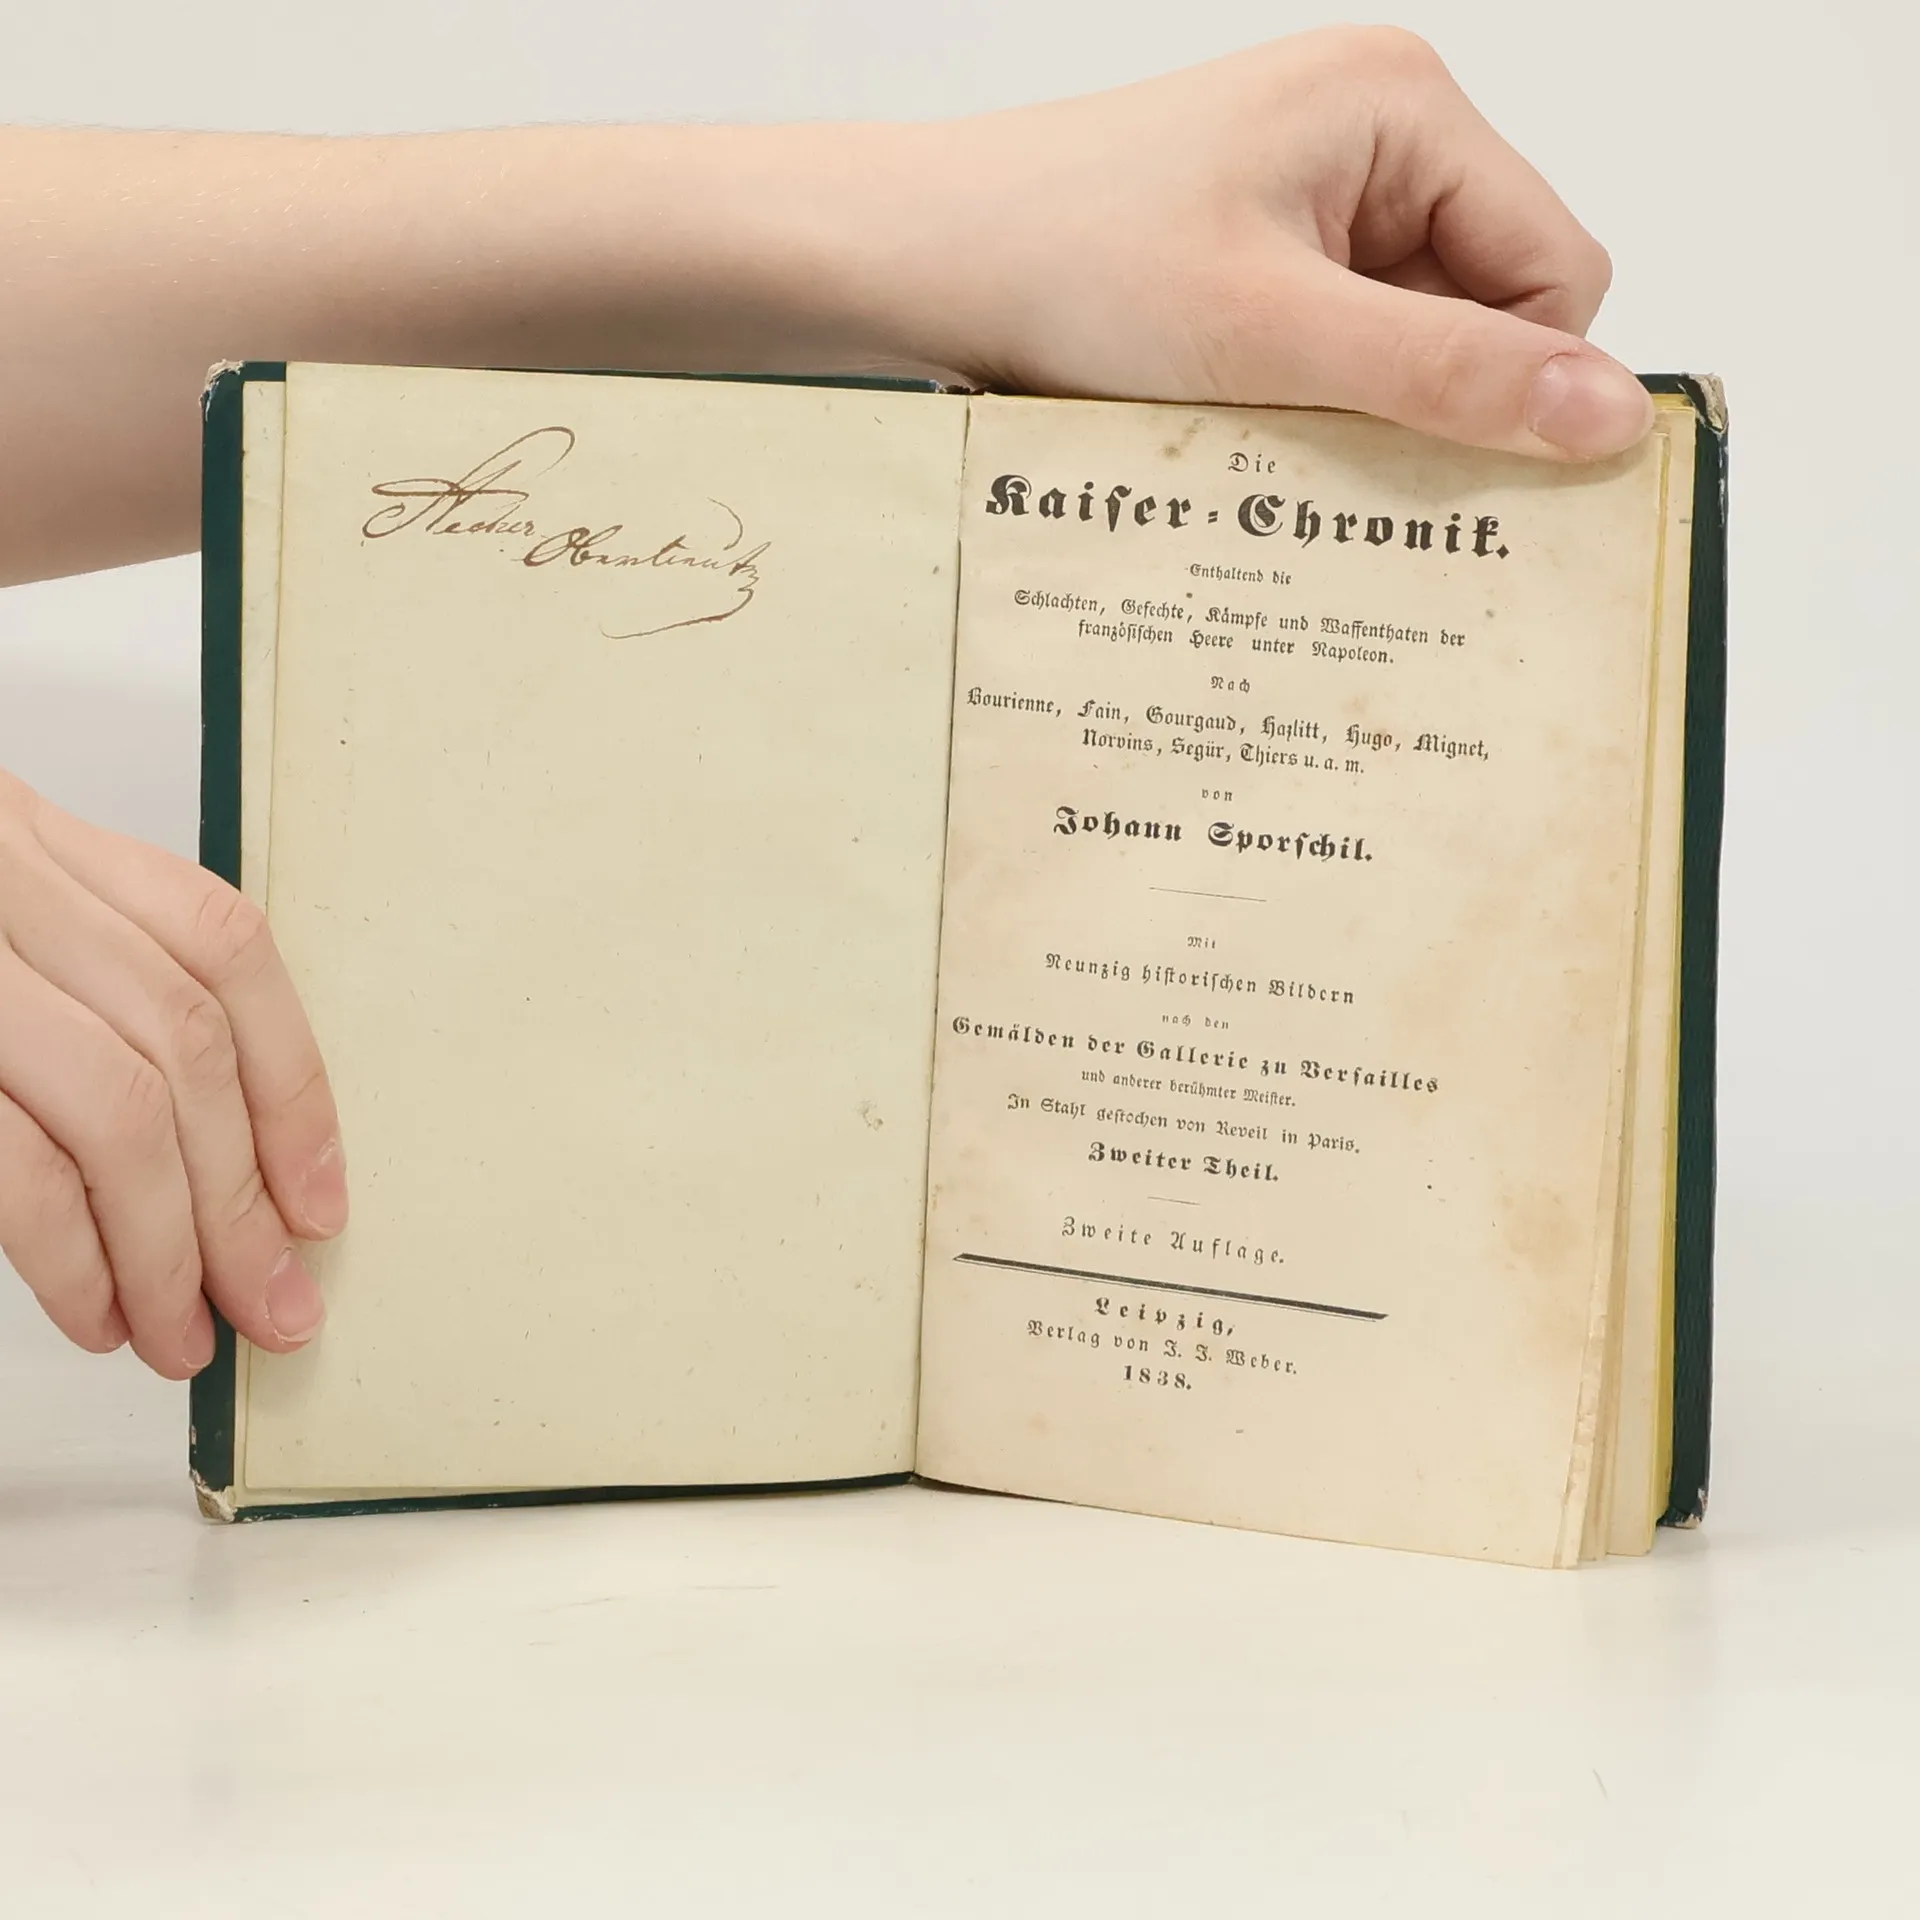 Oberlieut
Die
Kaiser-Chronik.
Enthaltend die
Schlachten, Gefechte, Kämpfe und Waffenthaten der
französischen Heere unter Napoleon.
Nach
Bourienne, Fain, Gourgaud, Hazlitt, Hugo, Mignet,
Norvins, Segür, Thiers u. a. m.
von
Johann Sporschil.
Mit
Neunzig historischen Bildern
nach den
Gemälden der Gallerie zu Versailles
und anderer berühmter Meister.
In Stahl gestochen von Reveil in Paris.
Zweiter Theil.
Zweite Auflage.
Leipzig,
Verlag von J. J. Weber.
1838.